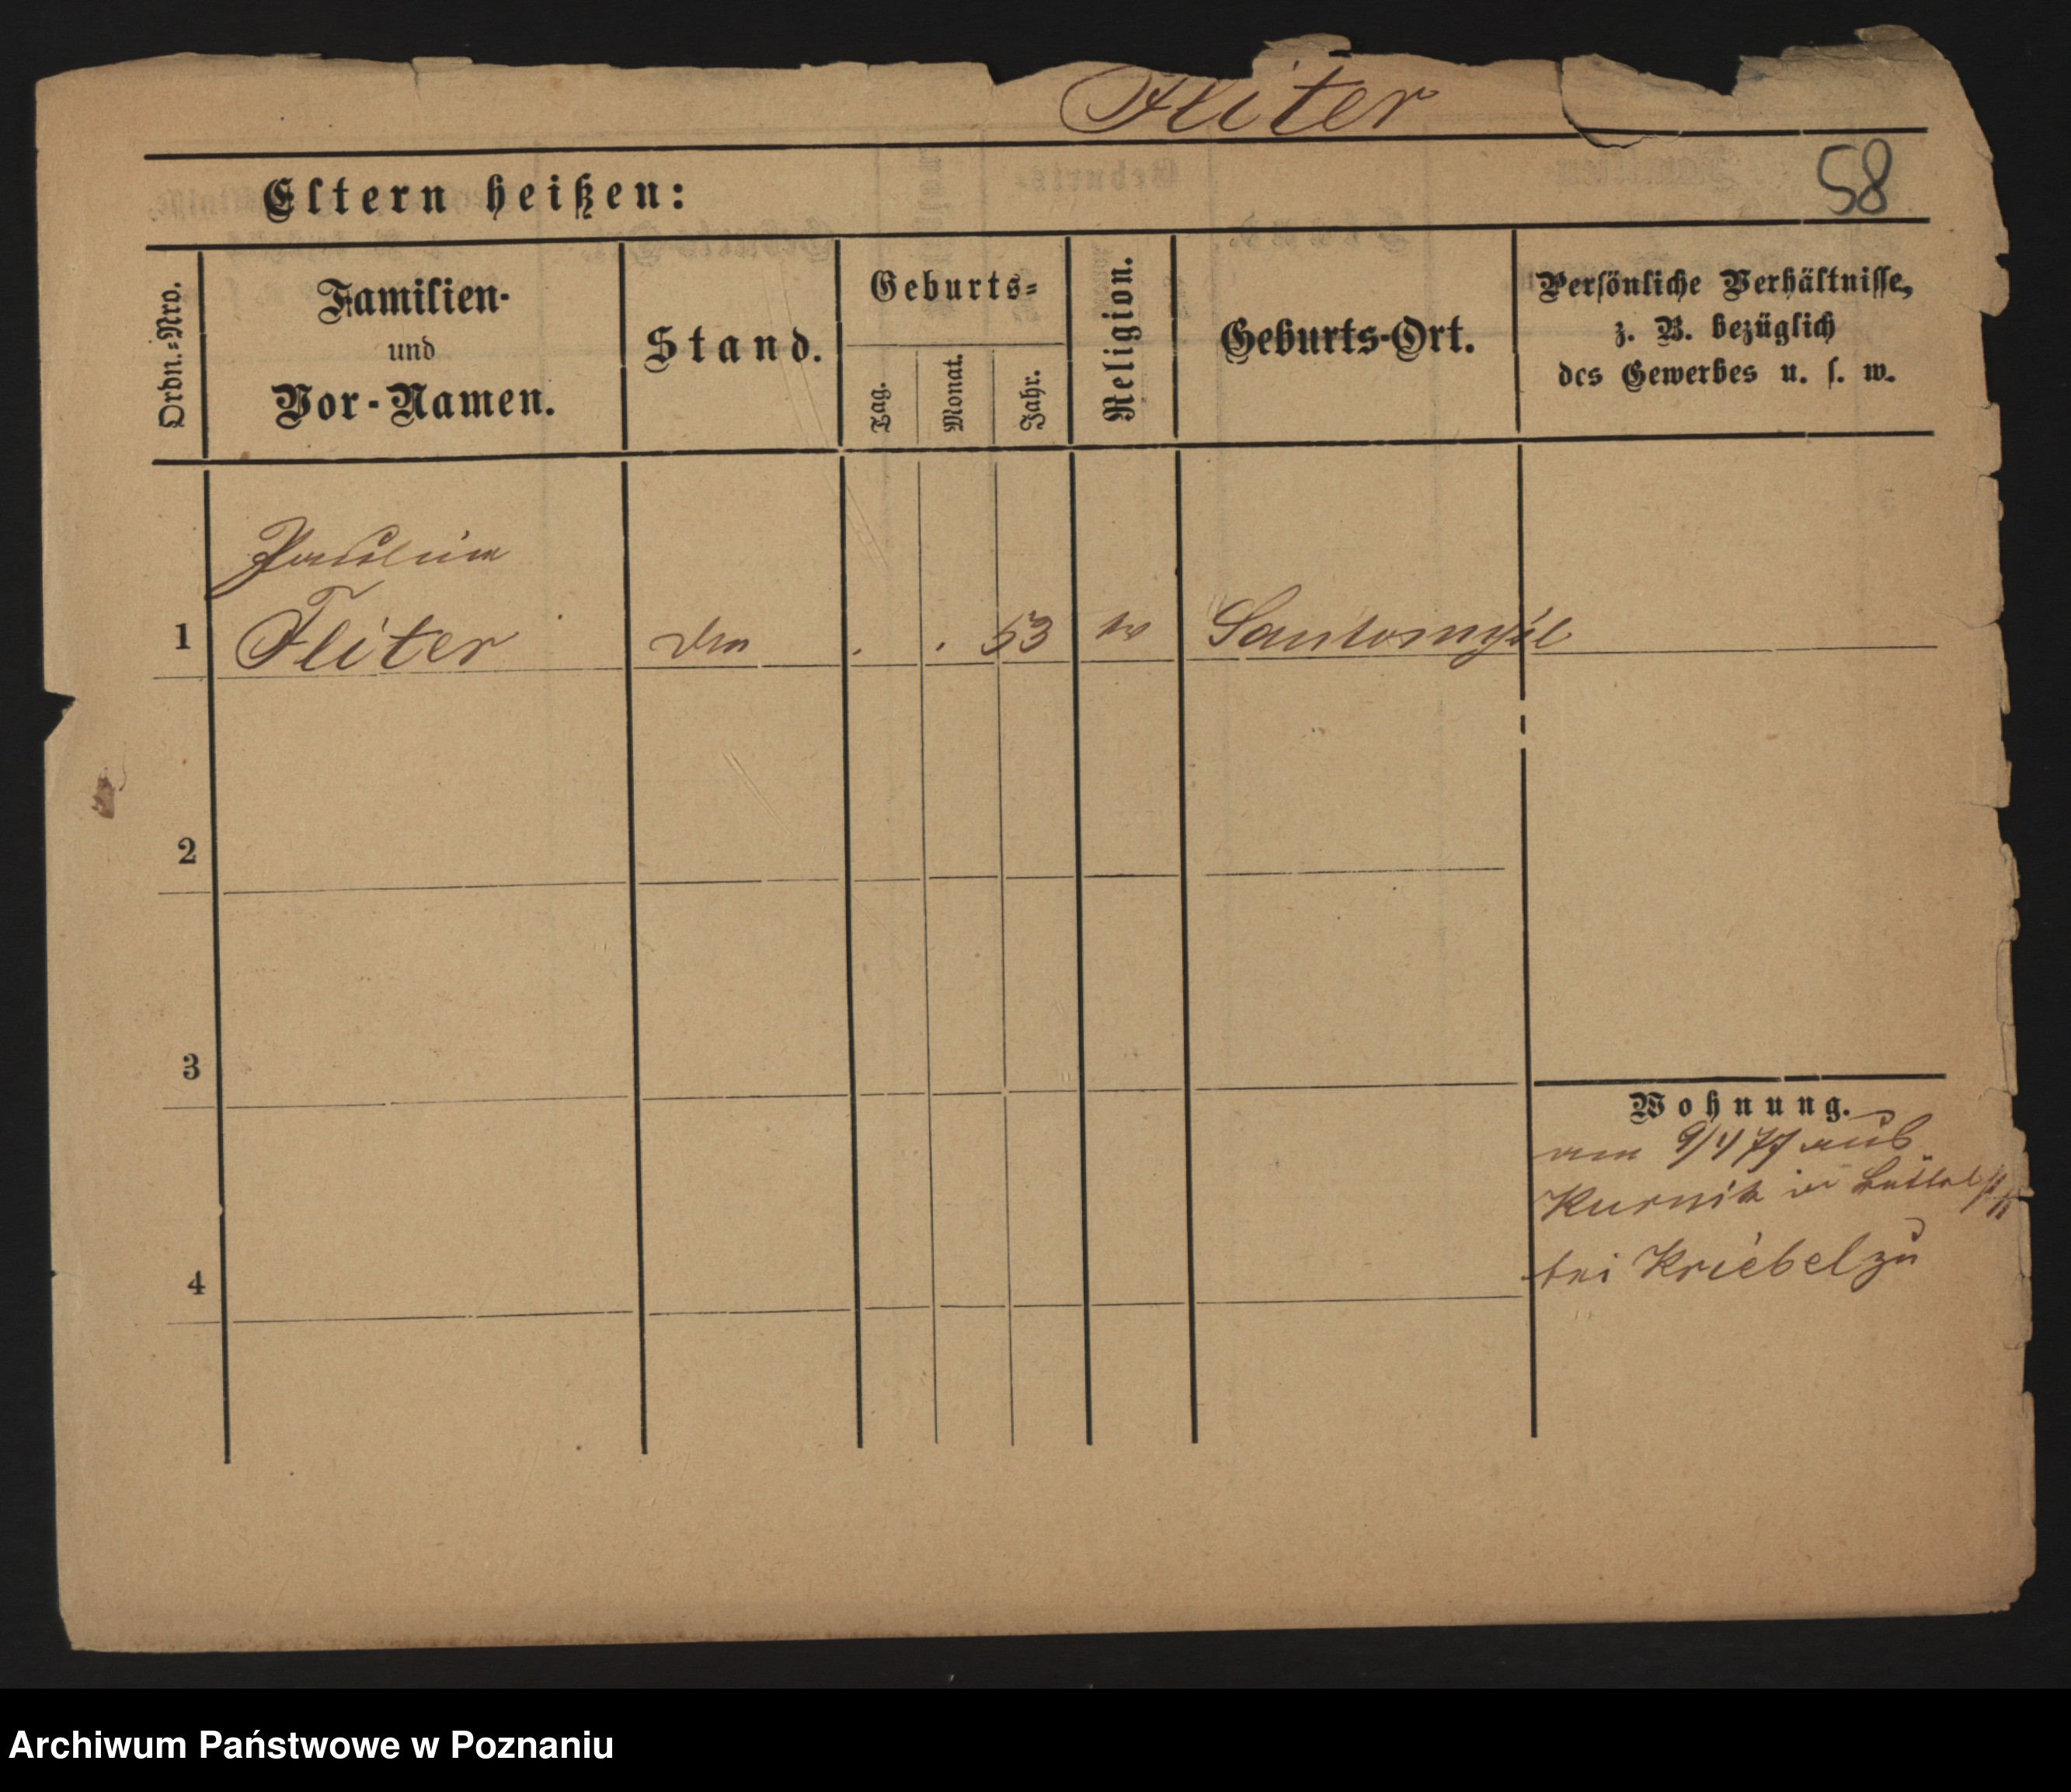 Fliter
58
Eltern heißen:
Ordn.-Nro.
Familien-
und
Vor-Namen.
Stand.
Geburts-
Tag.
Monat.
Jahr.
Religion.
Geburts-Ort.
Persönliche Verhältnisse,
z. B. bezüglich
des Gewerbes u. s. w.
Paulina
1 Fliter . . 53 Santomysl
2
3
4
Wohnung.
am 9/4 77 aus
Kurnik in
bei Kriebel zu
Archiwum Państwowe w Poznaniu